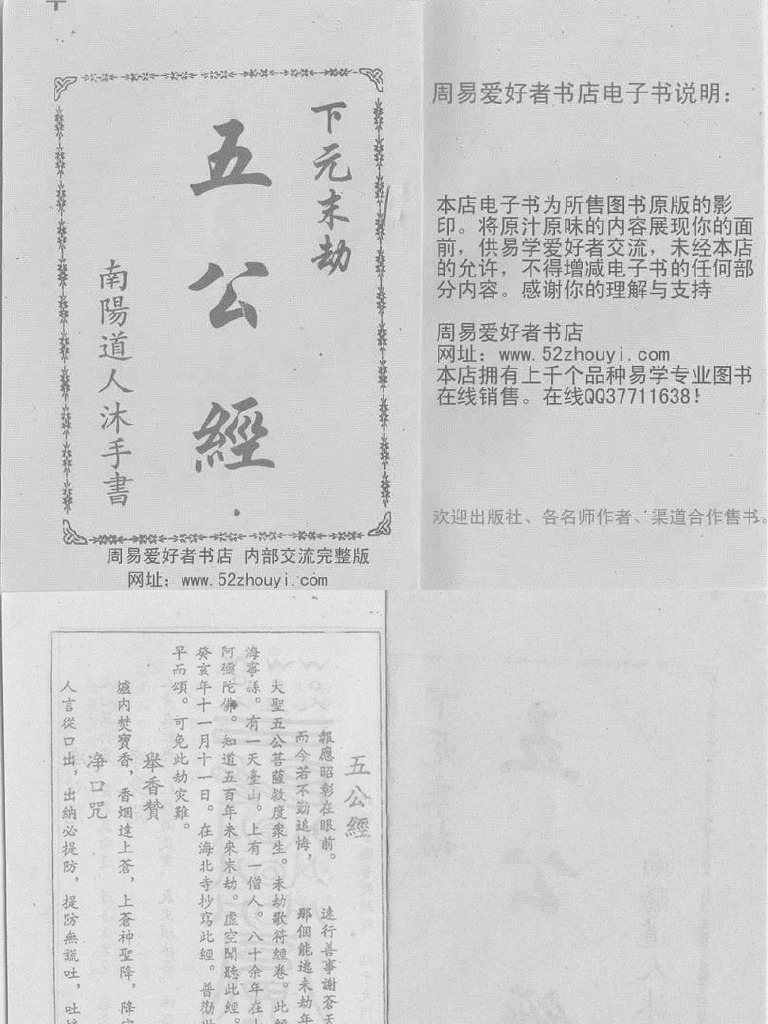 下元末劫
五公經
南陽道人沐手書
周易爱好者书店 内部交流完整版
网址：www.52zhouyi.com
周易爱好者书店电子书说明：
本店电子书为所售图书原版的影
印。将原汁原味的内容展现你的面
前，供易学爱好者交流，未经本店
的允许，不得增减电子书的任何部
分内容。感谢你的理解与支持
周易爱好者书店
网址：www.52zhouyi.com
本店拥有上千个品种易学专业图书
在线销售。在线QQ37711638！
欢迎出版社、各名师作者、渠道合作售书。
五公經
報應昭彰在眼前。 速行善事謝蒼天
而今若不勤追悔， 那個能逃末劫年
大聖五公菩薩救度衆生。末劫歌符經卷。此經
海寧縣。有一天臺山。上有一僧人。八十餘年在
阿彌陀佛。知道五百年未來末劫。虛空聞聽此經。
癸亥年十一月十一日。在海北寺抄寫此經。普勸
早而頌。可免此劫灾難。
舉香贊
爐内焚寶香，香烟達上蒼，上蒼神聖降，降
净口咒
人言從口出，出納必提防，提防無謊吐，吐